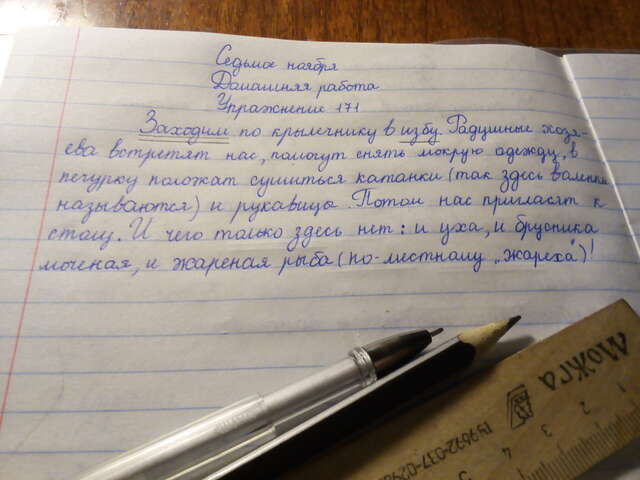 Седьмое ноября
Домашняя работа
Упражнение 171
Заходим по крылечнику в избу. Радушные хозя-
ева встретят нас, помогут снять мокрую одежду, в
печурку положат сушиться катанки (так здесь валенки
называются) и рукавицы. Потом нас пригласят к
столу. И чего только здесь нет: и уха, и брусника
моченая, и жареная рыба (по-местному „жареха")!
можга
1 2 3 4